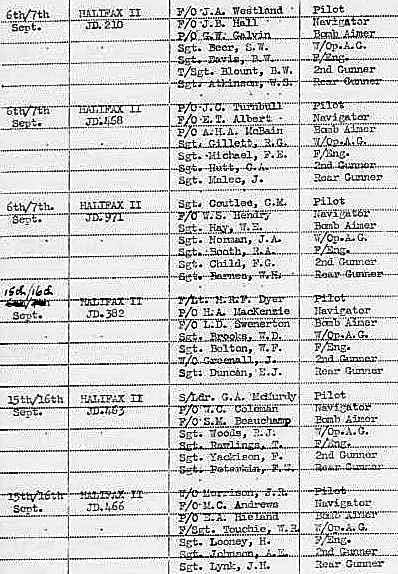 6th/7th HALIFAX II F/O J.A. Westland Pilot
Sept. JD.210 F/O J.B. Hall Navigator
P/O G.W. Galvin Bomb Aimer
Sgt. Beer, S.W. W/Op.A.G.
Sgt. Davis, B.W. F/Eng.
T/Sgt. Blount, B.W. 2nd Gunner
Sgt. Atkinson, W.S. Rear Gunner
6th/7th HALIFAX II P/O J.C. Turnbull Pilot
Sept. JD.468 F/O E.T. Albert Navigator
P/O A.H.A. McBain Bomb Aimer
Sgt. Gillett, R.G. W/Op.A.G.
Sgt. Michael, F.E. F/Eng.
Sgt. Hutt, G.A. 2nd Gunner
Sgt. Maleo, J. Rear Gunner
6th/7th. HALIFAX II Sgt. Coutlee, C.M. Pilot
Sept. JD.971 F/O W.S. Hendry Navigator
Sgt. Hay, W.E. Bomb Aimer
Sgt. Norman, J.A. W/Op.A.G.
Sgt. Booth, R.A. F/Eng.
Sgt. Child, F.G. 2nd Gunner
Sgt. Barnes, W.H. Rear Gunner
15th/16th
HALIFAX II F/Lt. M.R.F. Dyer Pilot
Sept. JD.382 P/O H.A. MacKenzie Navigator
F/O L.D. Swenerton Bomb Aimer
Sgt. Brooks, W.D. W/Op.A.G.
Sgt. Bolton, W.F. F/Eng.
W/O Greenall, J. 2nd Gunner
Sgt. Duncan, E.J. Rear Gunner
15th/16th HALIFAX II S/Ldr. G.A. McMurdy Pilot
Sept. JD.463 P/O W.C. Coleman Navigator
F/O S.M. Beauchamp Bomb Aimer
Sgt. Woods, R.J. W/Op.A.G.
Sgt. Rawlings, T. F/Eng.
Sgt. Yackison, F. 2nd Gunner
Sgt. Peterkin, Rear Gunner
15th/16th HALIFAX II W/O Morrison, J.R. Pilot
Sept. JD.466 P/O M.C. Andrews Navigator
P/O E.A. Hieland Bomb Aimer
F/Sgt. Touchie, W.R. W/Op.A.G.
Sgt. Looney, H. F/Eng.
Sgt. Johnson, A.E. 2nd Gunner
Sgt. Lynk, J.H. Rear Gunner